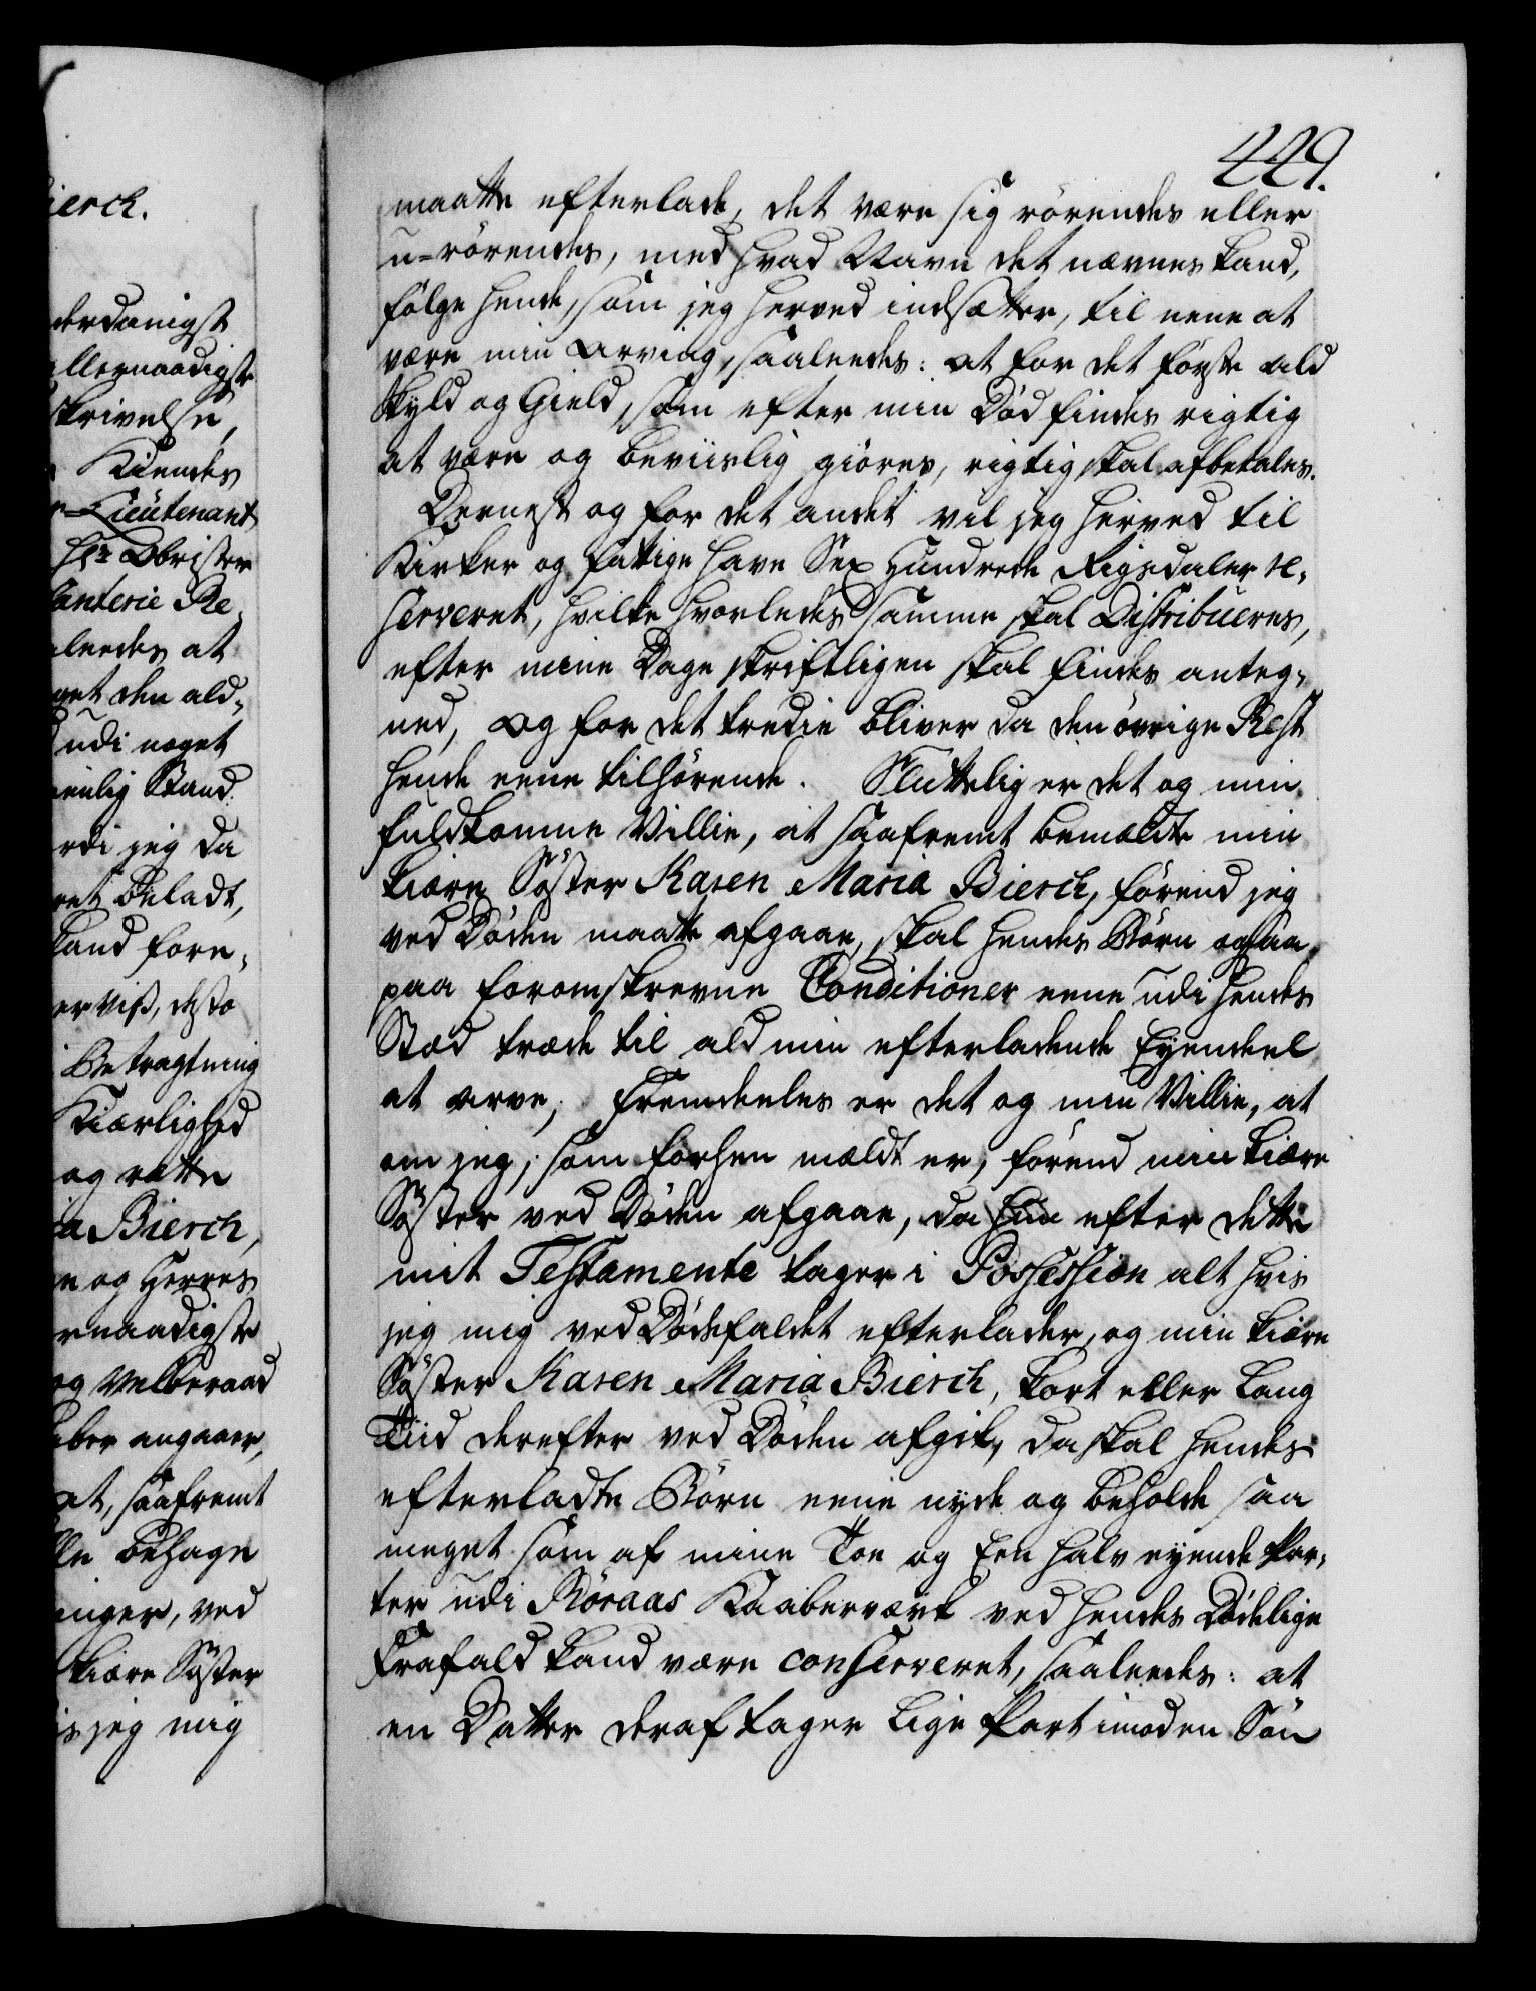 ierch.
derdanigst
allernaadigste
skrivelse,
Kiendes
r-Lieutenant
Hr. Obrister
fanterie Re-
aleedes at
get den ald-
udi noget
ienlig Stand
rdi jeg da
ret beladt,
kand fore-
er viß, desto
Betragtning
Kiærlighed
og rette
ia Bierch,
e og Herres
rnaadigste
og Velberaad
aber angaaer,
et, saafremt
lle behage
inger, ved
kiære Søster
is jeg mig
449.
maatte efterlade, det være sig rörendes eller
u=rörendes, med hvad Navn det nævnes kand,
fölge hende, som jeg herved indsætter, til eene at
være min Arving, saaleedes: at for det förste ald
Skyld og Gield, som efter min Död findes rigtig
at være og beviislig giöres, rigtig skal afbetales.
Dernest og for det andet vil jeg herved til
Kirker og fattige have Sex Hundrede Rigsdaler re-
serveret, hvilke hvorledes samme skal Distribueres,
efter mine Dage skriftligen skal findes anteg-
ned, og for det tredie bliver da den övrige Rest
hende eene tilhörende. Sluttelig er det og min
fuldkomne Villie, at saafremt bemældte min
kiære Söster Karen Maria Bierch, förend jeg
ved Döden maatte afgaae, skal hendes Börn ogsaa
paa foromskrevne Conditioner eene udi hendes
Stæd træde til ald min efterladende Eyendeel
at arve; Fremdeeles er det og min Villie, at
om jeg, som forhen mældt er, förend min kiære
Söster ved Döden afgaae, da hun efter dette
mit Testamente tager i Possession alt hvis
jeg mig ved Dödsfaldet efterlader, og min kiære
Söster Karen Maria Bierch, kort eller lang
Tiid derefter ved Döden afgik, da skal hendes
efterladte Börn eene nyde og beholde saa
meget som af mine Toe og Een halv eyende Par-
ter udi Röraas Kaaberværk ved hendes Dödelige
Frafald kand være conserveret, saaleedes: at
en Datter deraf tager lige Part imod en Sön